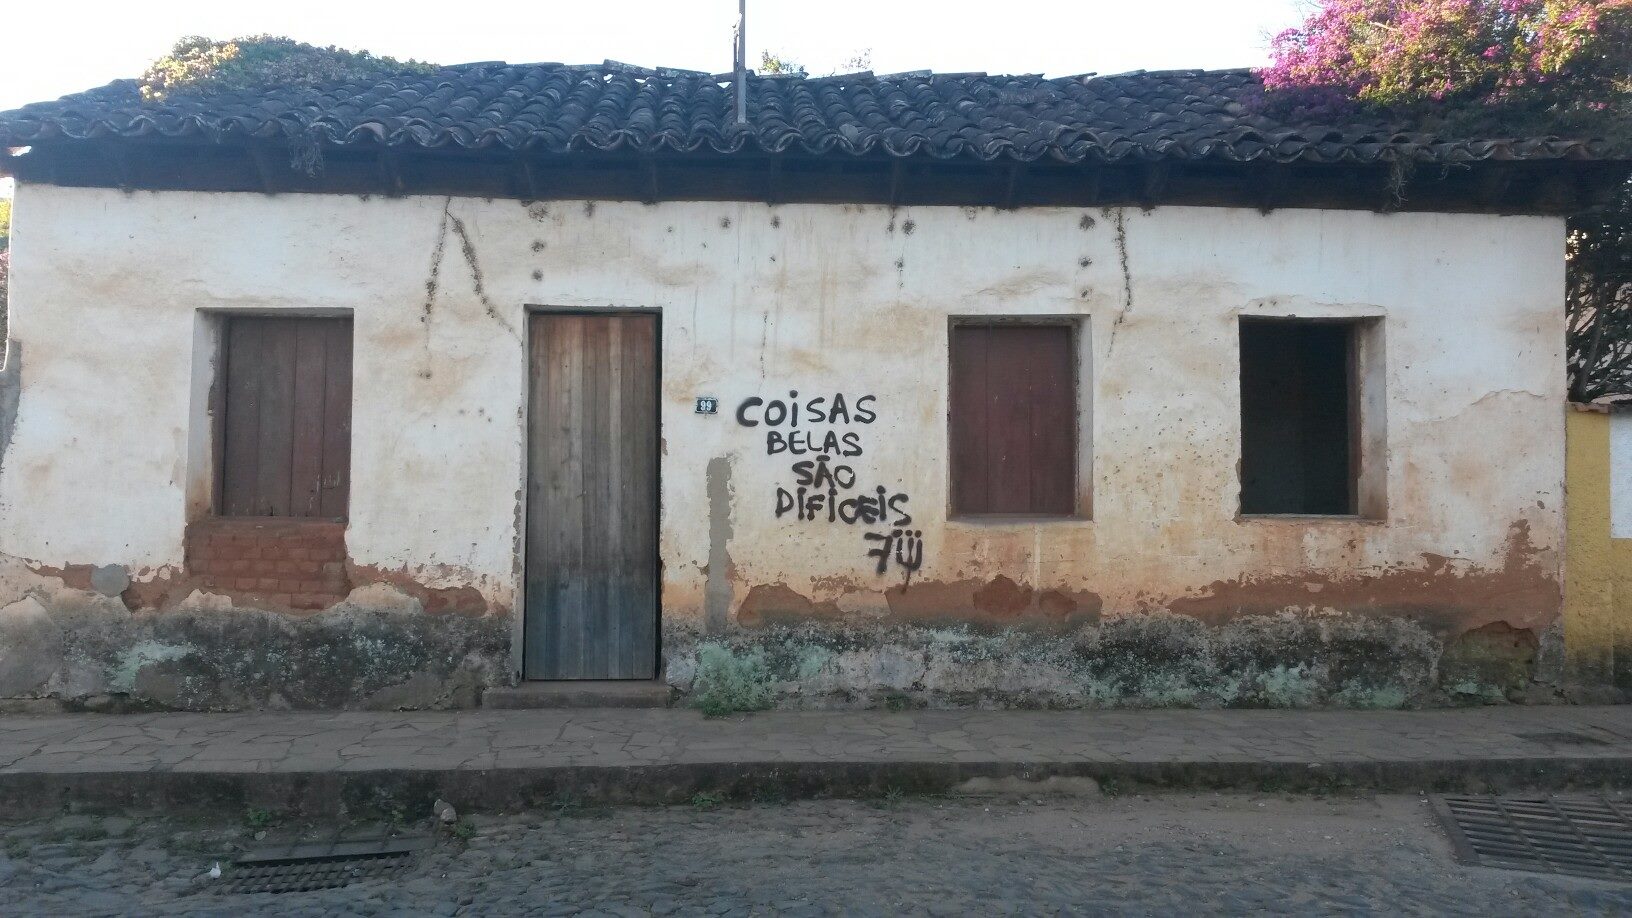 99
COISAS
BELAS
SÃO
DIFICEIS